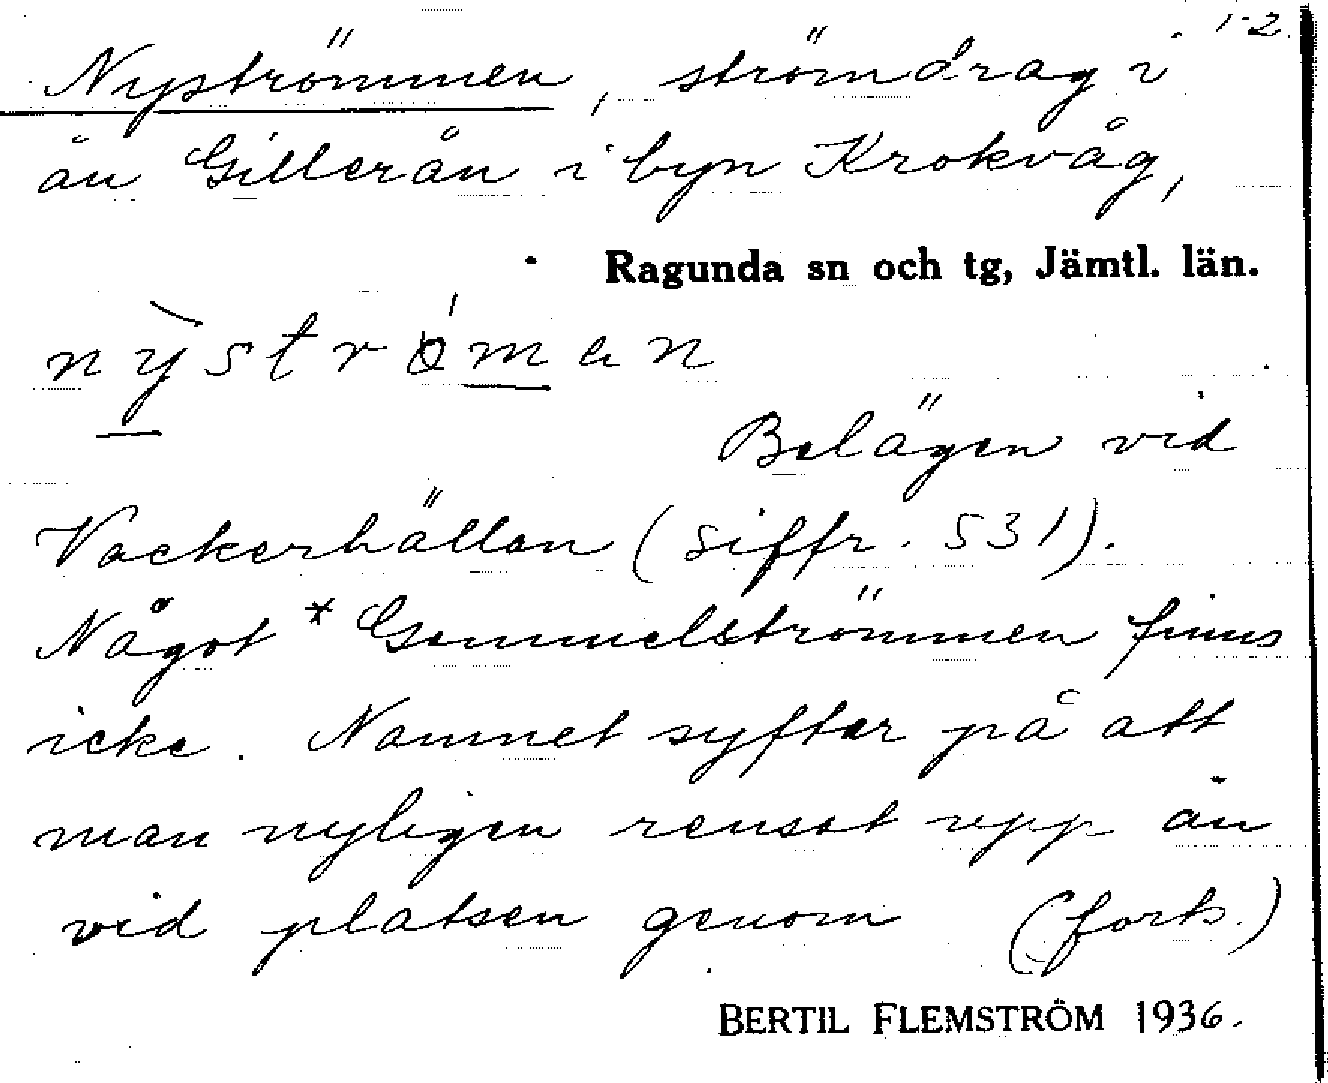 1-2.
Nyströmmen, strömdrag i
ån Gillerån i byn Krokvåg,
Ragunda sn och tg, Jämtl. län.
nỳströ́man
Belägen vid
Vackerhällan (siffr. 531).
Något *Gammelströmmen finns
icke. Namnet syftar på att
man nyligen rensat upp ån
vid platsen genom (forts.)
BERTIL FLEMSTRÖM 1936.